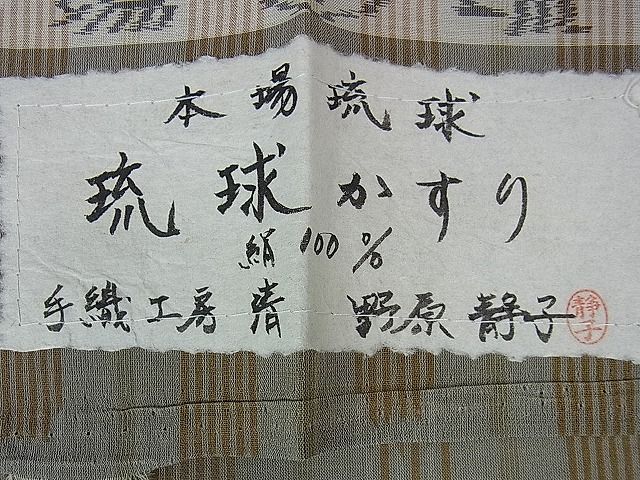 本場琉球
琉球かすり
絹100%
手織工房 清 野原静子
静子